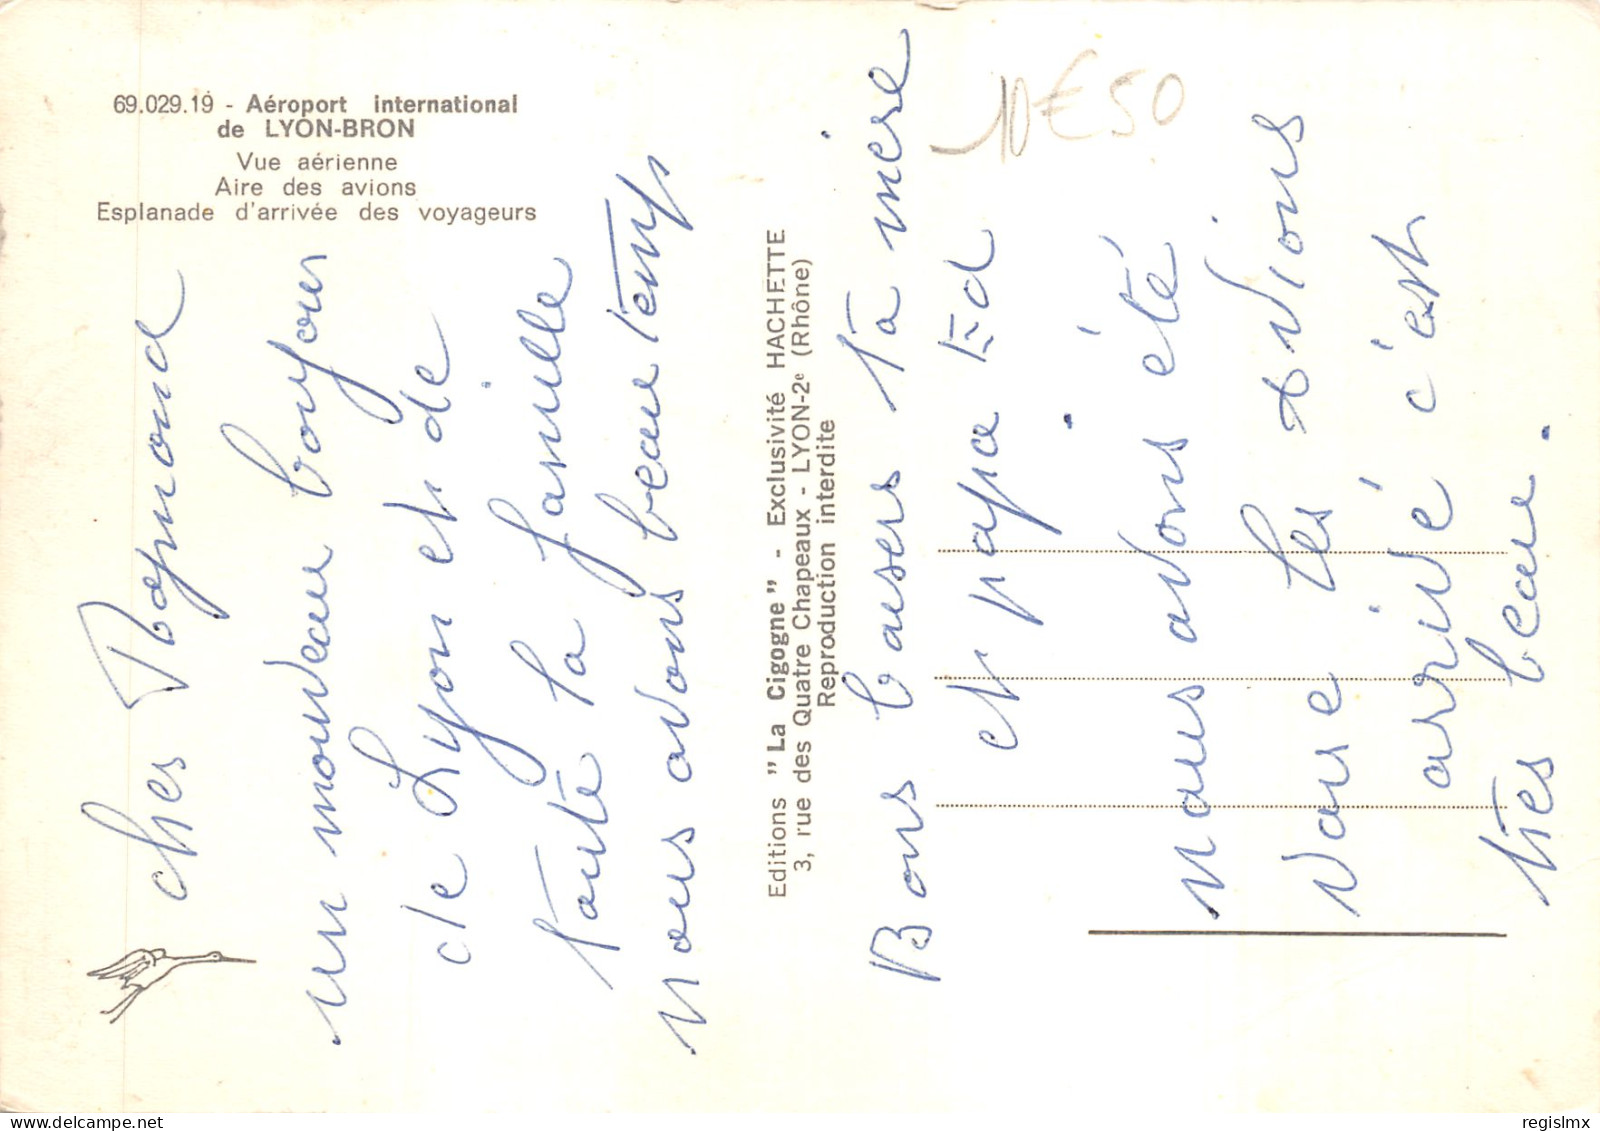 69.029.19 - Aéroport international
de LYON-BRON
Vue aérienne
Aire des avions
Esplanade d'arrivée des voyageurs
cher Raymond
un nouveau bonjour
de Lyon et de
toute la famille
nous avons beau temps
Editions "La Cigogne" - Exclusivité HACHETTE
3, rue des Quatre Chapeaux - LYON-2e (Rhône)
Reproduction interdite
Bons baisers ta mère
et papa
nous avons été
voire les avions
arrivé c'est
très beau.
10€50
regislmx